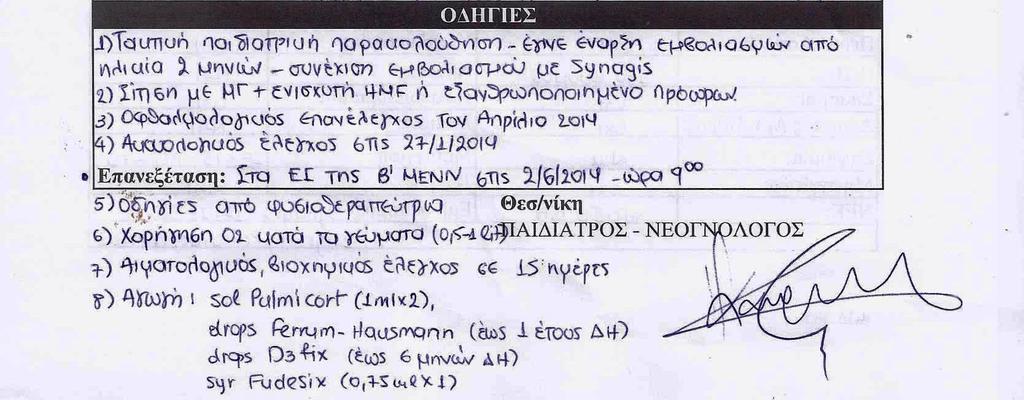 ΟΔΗΓΙΕΣ
1) Τακτική παιδιατρική παρακολούθηση - έγινε έναρξη εμβολιασμών από
ηλικία 2 μηνών - συνέχιση εμβολιασμού με Synagis
2) Σίτιση με ΜΓ + ενισχυτή HMF ή εξανθρωποποιημένο πρόωρων.
3) Οφθαλμολογικός επανέλεγχος τον Απρίλιο 2014
4) Ακουολογικός έλεγχος στις 27/1/2014
• Επανεξέταση: Στα ΕΙ της Β' ΜΕΝΝ στις 2/6/2014 - ώρα 9⁰⁰
5) Οδηγίες από φυσιοθεραπεύτρια Θεσ/νίκη
6) Χορήγηση O2 κατά τα γεύματα (0,5-1 lit) ΠΑΙΔΙΑΤΡΟΣ - ΝΕΟΓΝΟΛΟΓΟΣ
7) Αιματολογικός, βιοχημικός έλεγχος σε 15 ημέρες
8) Αγωγή: sol Pulmicort (1mlx2),
drops Ferrum-Hausmann (έως 1 έτους ΔΗ)
drops D3 fix (έως 6 μηνών ΔΗ)
syr Fudesix (0,75mlx1)